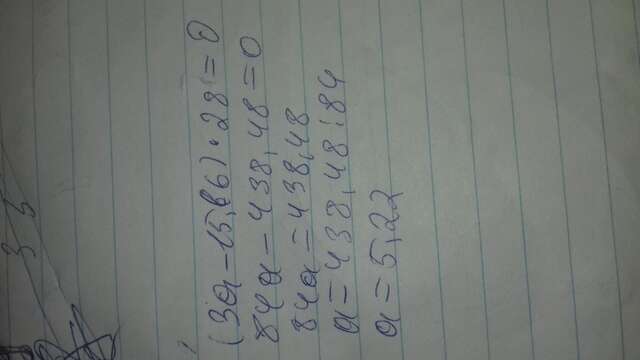 35
(3a-15,66)·28=0
84a-438,48=0
84a=438,48
a=438,48:84
a=5,22